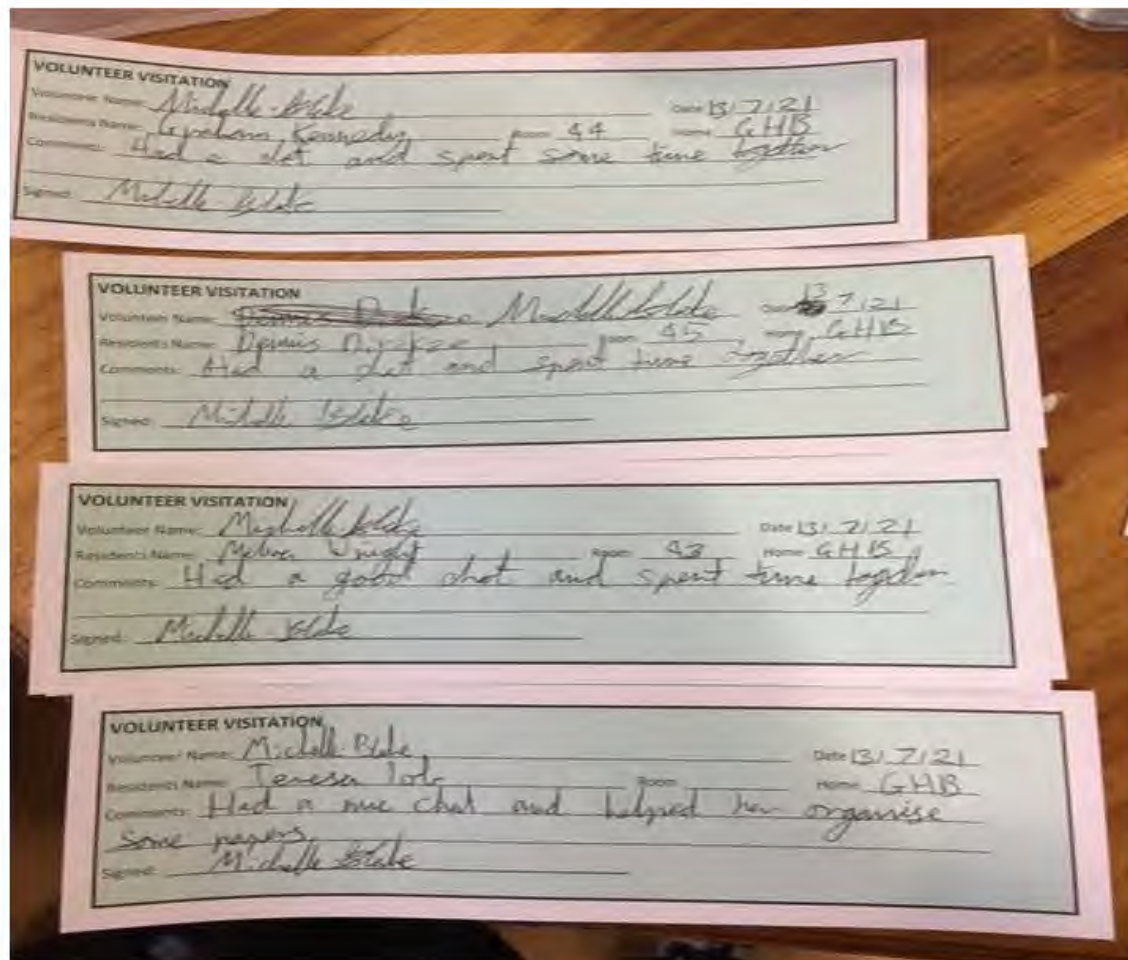 VOLUNTEER VISITATION
Volunteer Name: Michelle Blake Date 13/7/21
Residents Name: Graham Kennedy Room 44 Home GHB
Comments: Had a chat and spent some time together
Signed: Michelle Blake
VOLUNTEER VISITATION
Volunteer Name: Michelle Blake Date 13/7/21
Residents Name: Dennis Room 45 Home GHB
Comments: Had a chat and spent time together
Signed: Michelle Blake
VOLUNTEER VISITATION
Volunteer Name: Michelle Blake Date 13/7/21
Residents Name: Melva Wright Room 43 Home GHB
Comments: Had a good chat and spent time together
Signed: Michelle Blake
VOLUNTEER VISITATION
Volunteer Name: Michelle Blake Date 13/7/21
Residents Name: Teresa Room Home GHB
Comments: Had a nice chat and helped her organise
some papers
Signed: Michelle Blake